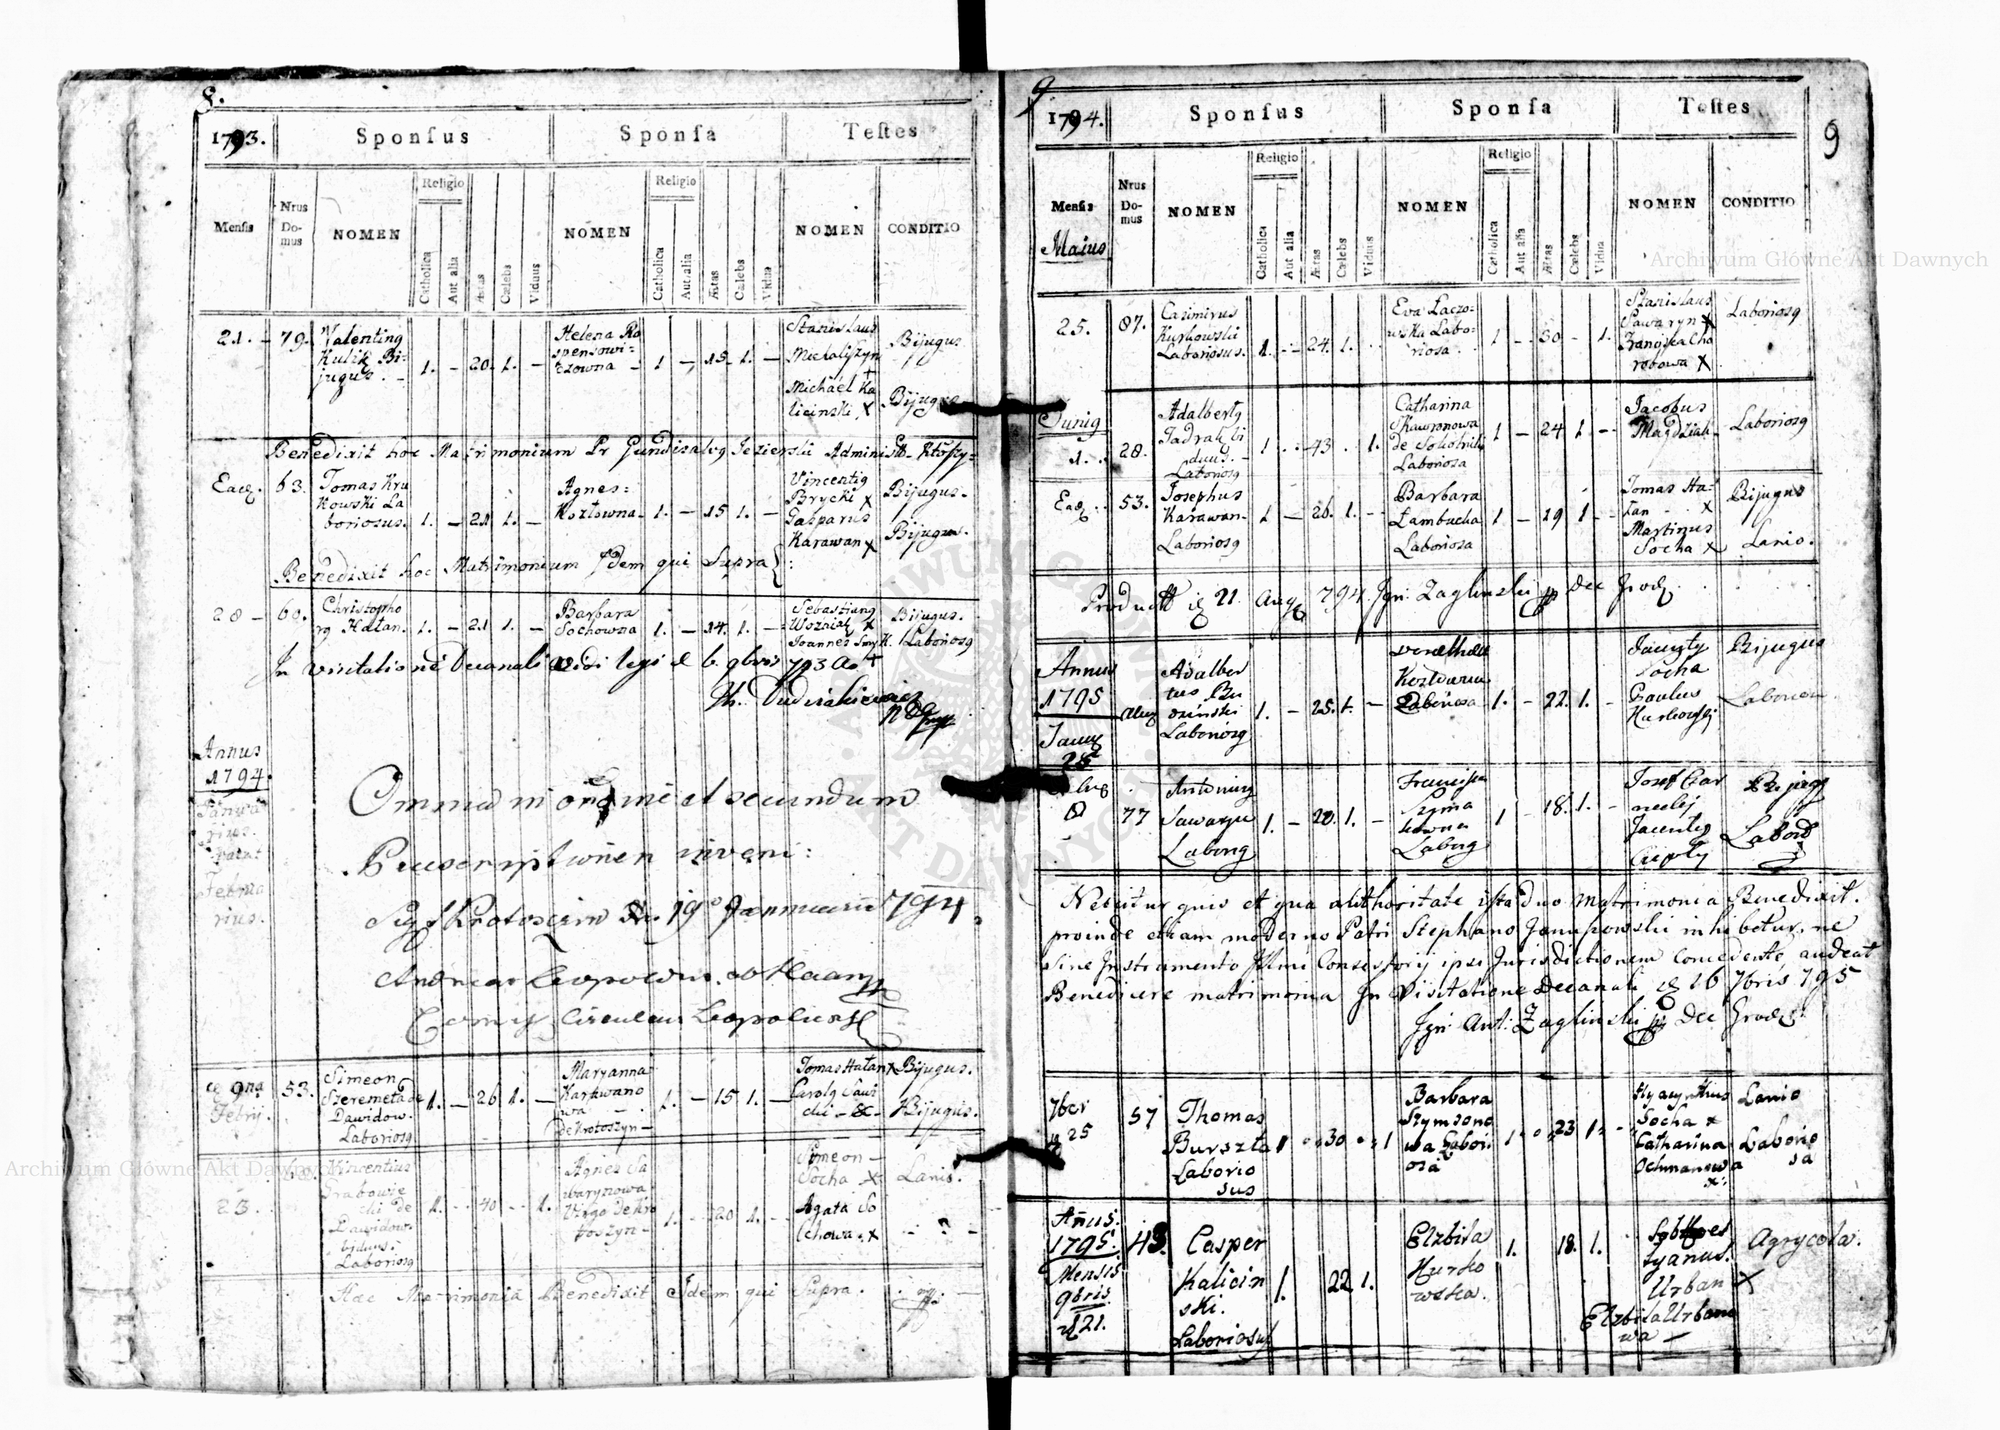 8.
1793.
Sponſus
Sponſa
Teſtes
Menſis
Nrus Domus
NOMEN
Religio
Catholica
Aut alia
Ætas
Cælebs
Viduus
NOMEN
Religio
Catholica
Aut alia
Ætas
Cælebs
Vidua
NOMEN
CONDITIO
21. - 79.
Valenting
Kulik Bi-
jugus. -
1. - 20. 1. -
Helena Ka
spensowi-
czowna -
1 - 15 - 1. -
Stanislaus
Michaliszyn
+
Michael Ka
licinski, x
Bijugus
Bijugus
Benedixit hoc Matrimonium Pr Gundisalvg Jezierski
Eadẽ. 63.
Tomas Kru
kowski La
boriosus.
1. - 21 1. -
Agnes=
Kozłowna
1. - 15 1. -
Vincentig
Brycki x
Gasparus
Karawan x
Bijugus.
Bijugus.
Benedixit hoc Matrimonium Idem qui Supra
28 - 60.
Christopho
rg Hatan.
1. - 21 1. -
Barbara
Sochowna
1. - 14. 1. -
Sebastiang
Wozniak x
Joannes Smyk.
+
Bijugus.
Laboriosg
In visitatione Decanali vidi legi
793
Annus
1794.
Janua
rius.
vacat
Februa
rius.
Omnia in ordine et secundum
Praescriptionem inveni:
19º Januarii 794.
Andreas Leopoldus
9na
Febrij.
53.
Simeon
Szeremeta de
Dawidow.
Laboriosg
1. - 26 1. -
Maryanna
Karkwano
wa -
de Krotoszyn -
1. - 15 1. -
Tomas Hatan x
Bijugus.
Bijugus.
23.
Vincentius
Grabowie
cki de
Dawidow.
viduus.
Laboriosg
1. - 40 - - 1.
Agnes Sa
warynowa
Virgo de Kro
toszyn -
1. - 20 1. -
Simeon -
Socha x
Agata So
chowa. x
Lanio.
Hae Matrimonia Benedixit Idem qui Supra.
9
1794.
Sponſus
Sponſa
Teſtes
9
Menſis
Nrus Domus
NOMEN
Religio
Catholica
Aut alia
Ætas
Cælebs
Viduus
NOMEN
Religio
Catholica
Aut alia
Ætas
Cælebs
Vidua
NOMEN
CONDITIO
Maius
Archiwum Główne Akt Dawnych
25. 87.
Casimirus
Kurkowski
Laboriosus.
1. - - 24. 1. . .
Eva Laczo-
wska Labo-
riosa
1 - - 30 - 1.
Stanislaus
Sawaryn x
Franciszka Cho
robowa x
Laboriosg
Junig
1. 28.
Adalbertg
Jadrak Vi
duus. -
Laboriosg
1 . . 43 . . 1.
Catharina
Skawronowa
de Sokolniki
Laboriosa
1 - 24 1 - -
Jacobus
Magdziak
Laboriosg
Eadẽ. 53.
Josephus
Karawan
Laboriosg
1 - 26. 1. -
Barbara
Lambucha
Laboriosa
1 - 19 1 - -
Tomas Ha-
tan - - x
Martinus
Socha x
Bijugus
Lanio.
21. Aug 794. Ign: Zaglinski Dec Grod.
Annus
1795
28
Adalber
tus Bu
rzinski
Laboriosg
1. - 25. 1. -
Kozlowna
Laboriosa
1. - 22. 1. -
Socha
Paulus
Kurkowskj
Bijugus
Laborio
8
77
Antoniug
Sawaryn
Laborg
1. - 20. 1. -
Francisca
Szyma
nowna
Laborg
1 - 18. 1. -
Josef
Jacentg
Ciepły
Nescitur quis et qua authoritate ista duo Matrimonia Benedixit.
proinde etiam moderno Patri Stephano Janupowski inhibetur, ne
sine Instrumento Illmi Consistorij ipsi Jurisdictionem concedente audeat
Benedicere matrimonia. In Visitatione Decanali 16 7bris 795
Ign: Ant: Zaglinski Dec Grod.
7ber
25
57
Thomas
Burszta
Laborio
sus
1 30 1
Barbara
Szymkono
wa Labori
osa
1 23 1
Hyacynthus
Socha x
Catharina
Ochmanowa
x
Lanio
Laborio
sa
Añus.
1795.
Mensis
9bris.
21.
43.
Casper
Kalicin
ski.
Laboriosus
1. 22 1.
Elzbita
Kurko
wska.
1. 18. 1.
Urban x
Elzbita Urbano
wa -
Agrycola.
Archiwum Główne Akt Dawnych
ARCHIWUM GŁÓWNE
AKT DAWNYCH